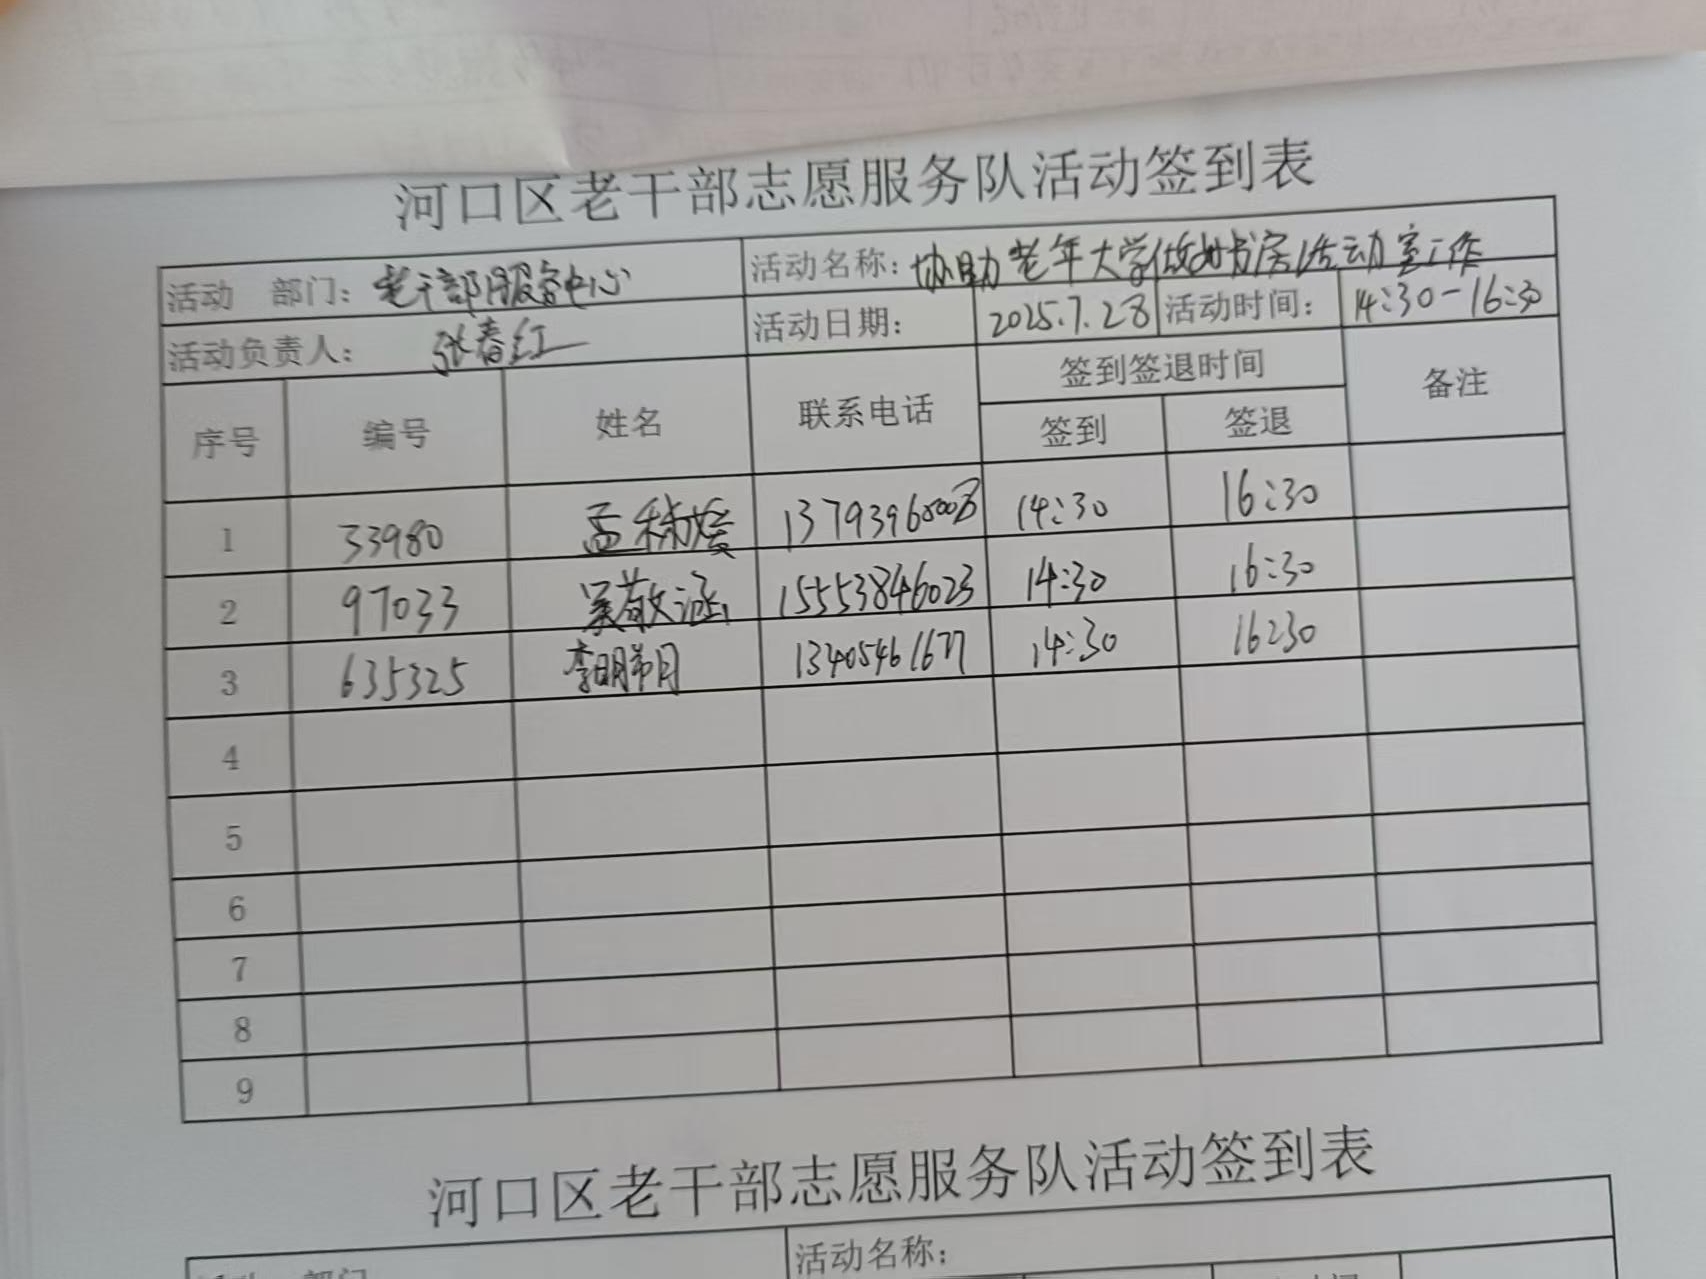 河口区老干部志愿服务队活动签到表
活动 部门: 老干部服务中心 活动名称: 协助老年大学做好书房活动室工作
活动负责人: 张春红 活动日期: 2025.7.28 活动时间: 14:30-16:30
序号 编号 姓名 联系电话 签到签退时间 备注
签到 签退
1 33980 孟 14:30 16:30
2 97033 吴敬涵 15553846023 14:30 16:30
3 635325 李明 13405461677 14:30 16:30
4
5
6
7
8
9
河口区老干部志愿服务队活动签到表
活动名称: